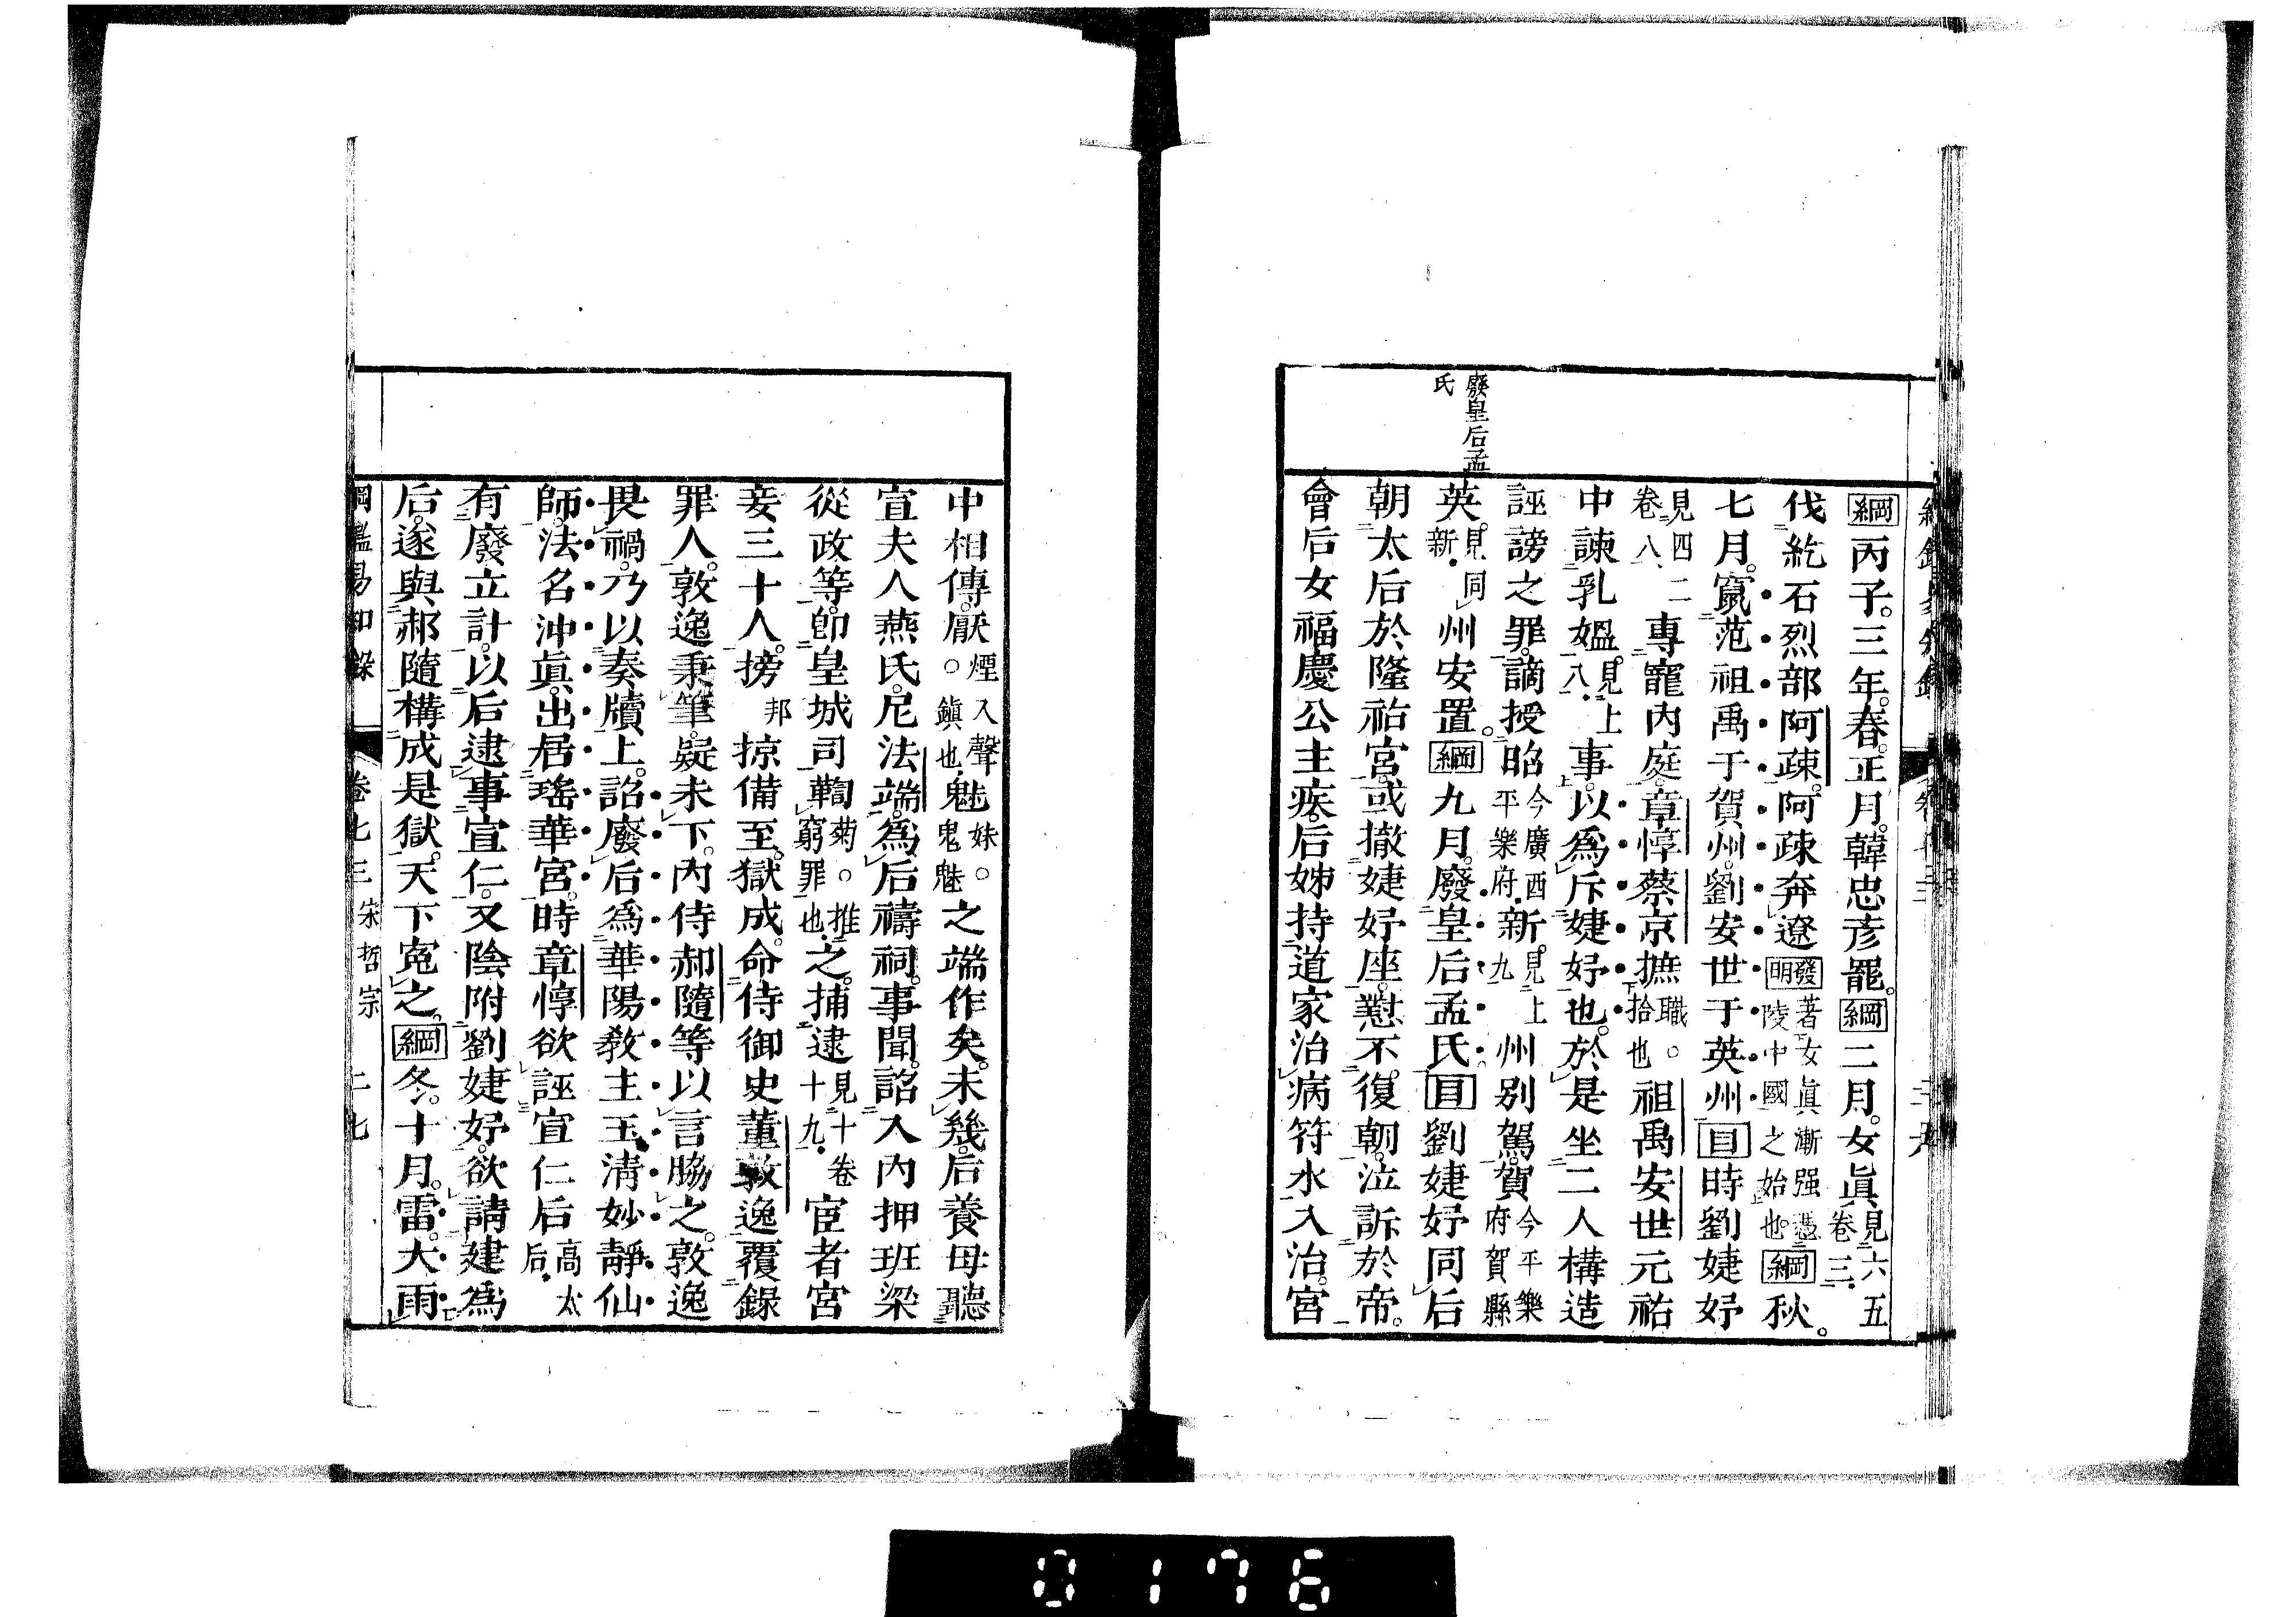 廢皇后孟
氏
綱丙子。三年。春。正月。韓忠彥罷。綱二月。女眞見六五卷三.
伐紇石烈部阿疎。阿疎奔遼發明著女眞漸强憑陵中國之始也。綱秋。
七月。竄范祖禹于賀州。劉安世于英州。目時劉婕妤
見四二卷八、專寵內庭章惇蔡京摭職。拾也祖禹安世元祐
中諫乳媼。見上八.事。以爲斥婕妤也。於是坐二人構造
誣謗之罪。謫授昭今廣西平樂府.新。見上九州別駕。賀今平樂府賀縣
英。見同新.州安置。綱九月。廢皇后孟氏目劉婕妤同后
朝太后於隆祐宮。或撤婕妤座。懟不復朝。泣訴於帝。
會后女福慶公主疾。后姊持道家治病符水入治。宮
中相傳。厭煙入聲。鎭也.魅妹。鬼魅之端作矣。未幾。后養母聽
宣夫人燕氏。尼法端。爲后禱祠。事聞。詔入內押班梁
從政等。卽皇城司鞫菊。推窮罪也.之。捕逮見十卷十九.宦者宮
妾三十人。搒邦掠備至。獄成。命侍御史董敦逸覆錄
罪人。敦逸秉筆。疑未下。內侍郝隨等以言脇之。敦逸
畏禍。乃以奏牘上。詔廢后爲華陽敎主玉淸妙靜仙
師。法名沖眞。出居瑤華宮。時章惇欲誣宣仁后高太后.
有廢立計。以后逮事宣仁。又陰附劉婕妤。欲請建爲
后。遂與郝隨構成是獄。天下寃之。綱冬。十月。雷。大雨
綱鑑易知錄 卷七三 宋哲宗 二七